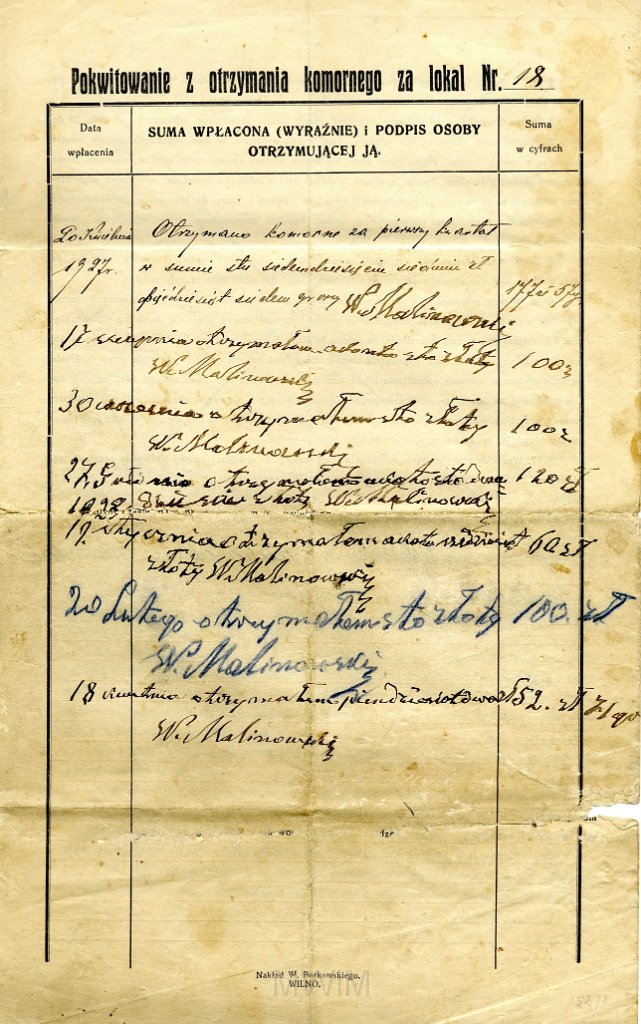 Pokwitowanie z otrzymania komornego za lokal Nr. 18
Data wpłacenia
SUMA WPŁACONA (WYRAŹNIE) i PODPIS OSOBY OTRZYMUJĄCEJ JĄ.
Suma w cyfrach
Otrzymano komorne za pierwszy kwartał
1927 r. w sumie sto siedemdziesięcie siedmiu zł
pięćdziesiąt siedem groszy W. Malinowski 177 zł 57
17 sierpnia otrzymałem sto złoty 100 z
W. Malinowski
30 otrzymałem sto złoty 100 z
W. Malinowski
27 otrzymałem sto dwa 120 zł
1928 złoty W. Malinowski
19 stycznia otrzymałem 60 zł
złoty W. Malinowski
20 Lutego otrzymałem sto złoty 100. zł
W. Malinowski
18 kwietnia otrzymałem 52. zł 71 gr
W. Malinowski
Nakład W. Borkowskiego.
WILNO.